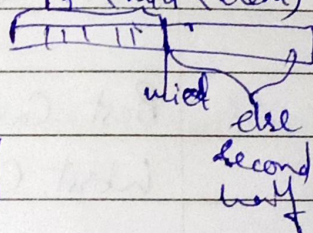 mid
else
second
half